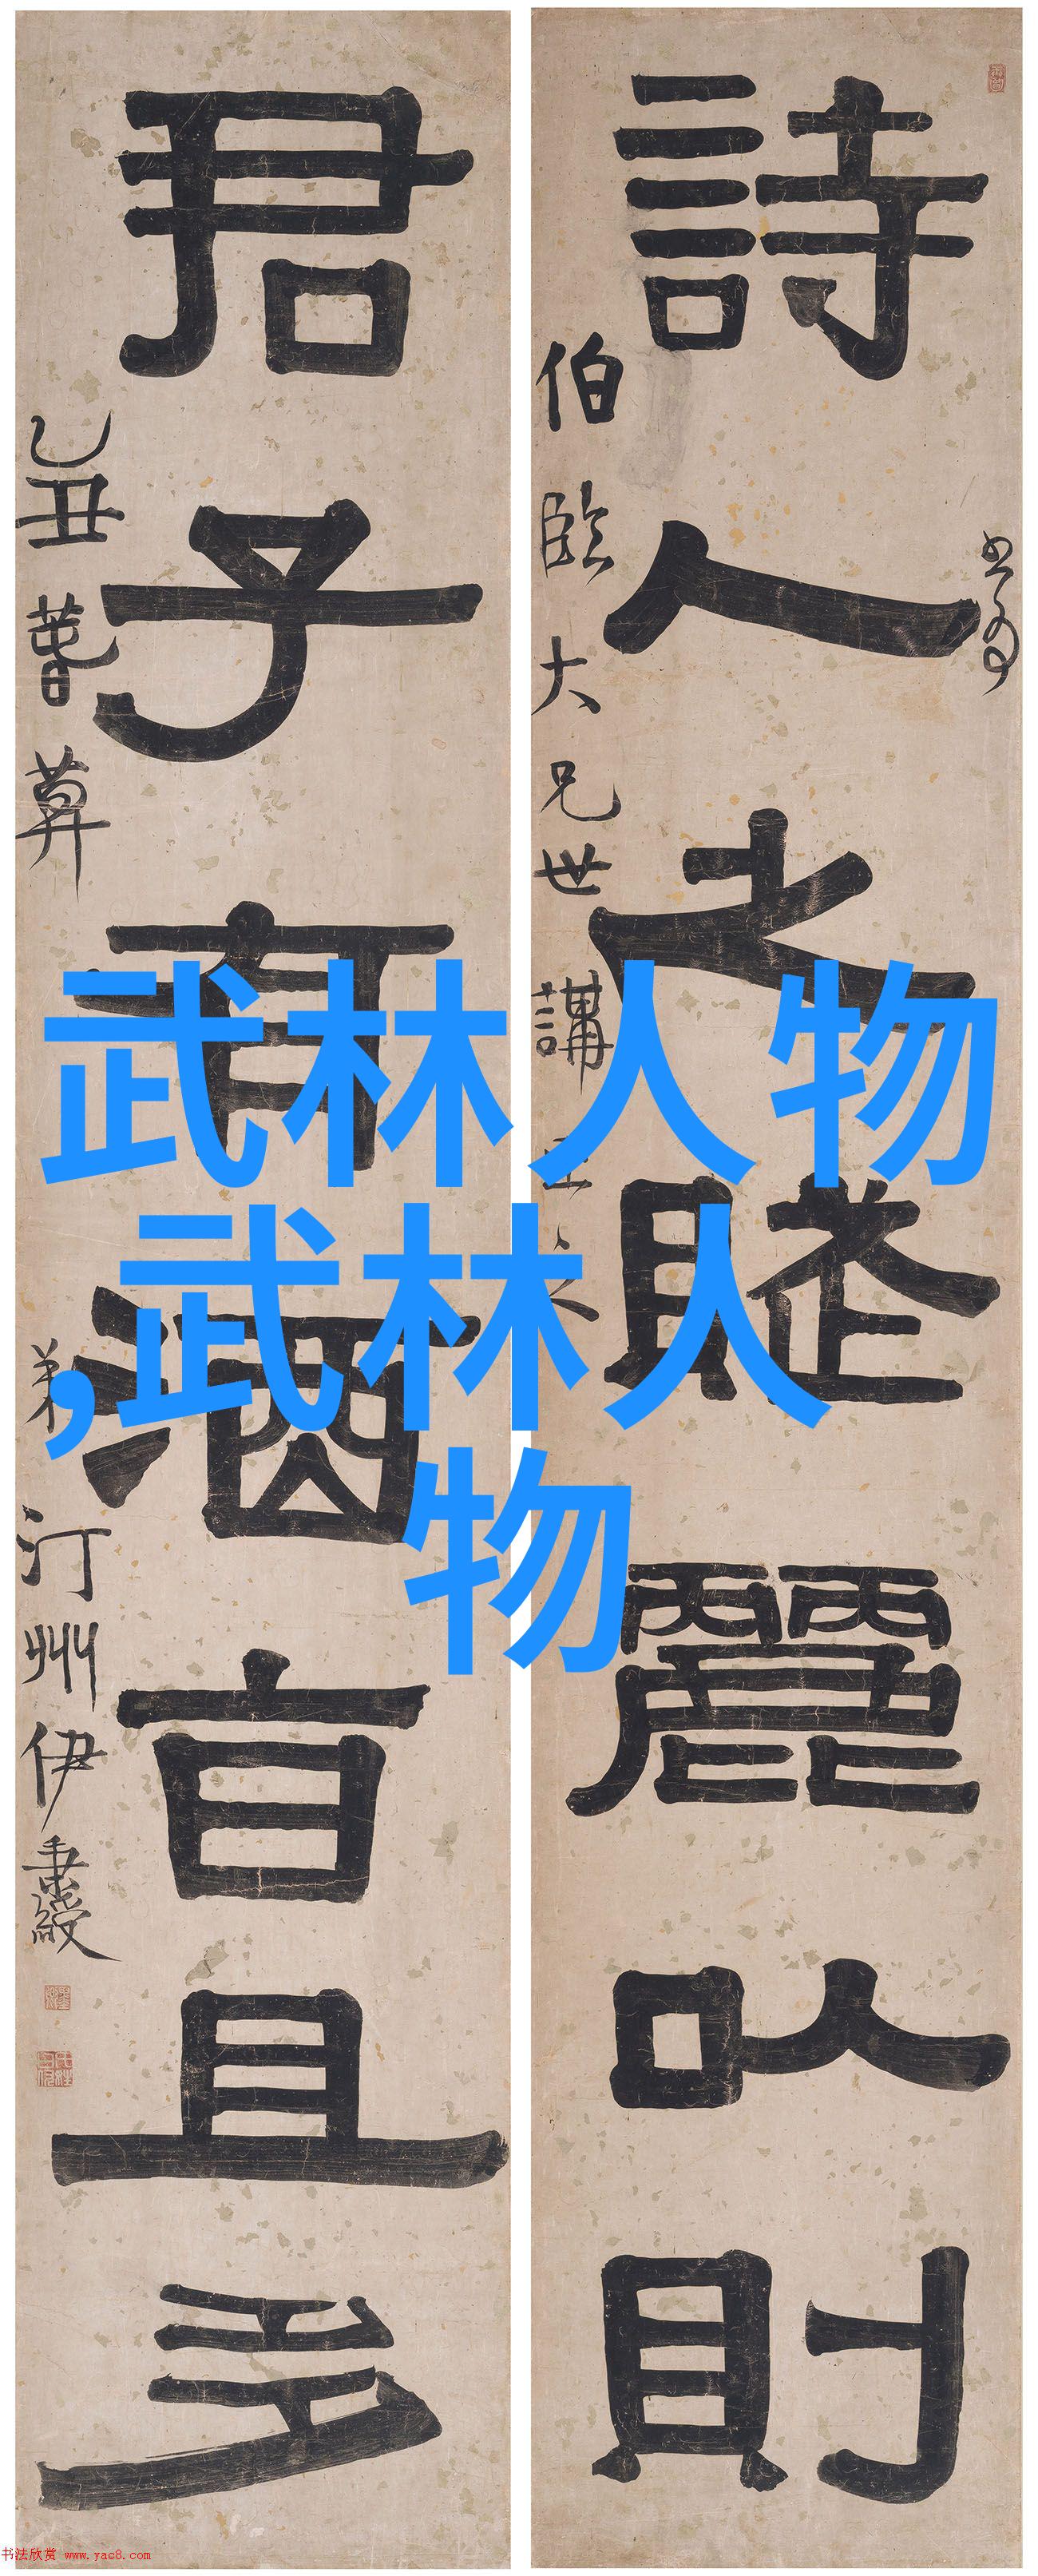 詩人之賦麗以則
君子有酒旨且多
伯臨大兄世講正之
乙丑暮春
弟汀州伊秉綬
武林人物
,武林人
物
书法欣赏 www.yac8.com